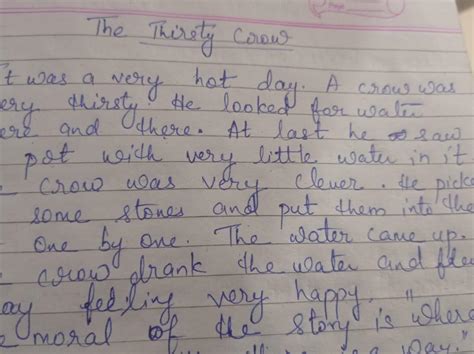 The Thirsty Crow
t was a very hot day. A crow was
ery thirsty. He looked for water
ere and there. At last he saw
pot with very little water in it
crow was very clever. He picke
some stones and put them into the
one by one. The water came up.
crow drank the water and fle
ay feeling very happy. "
e moral of the story is where
a way."